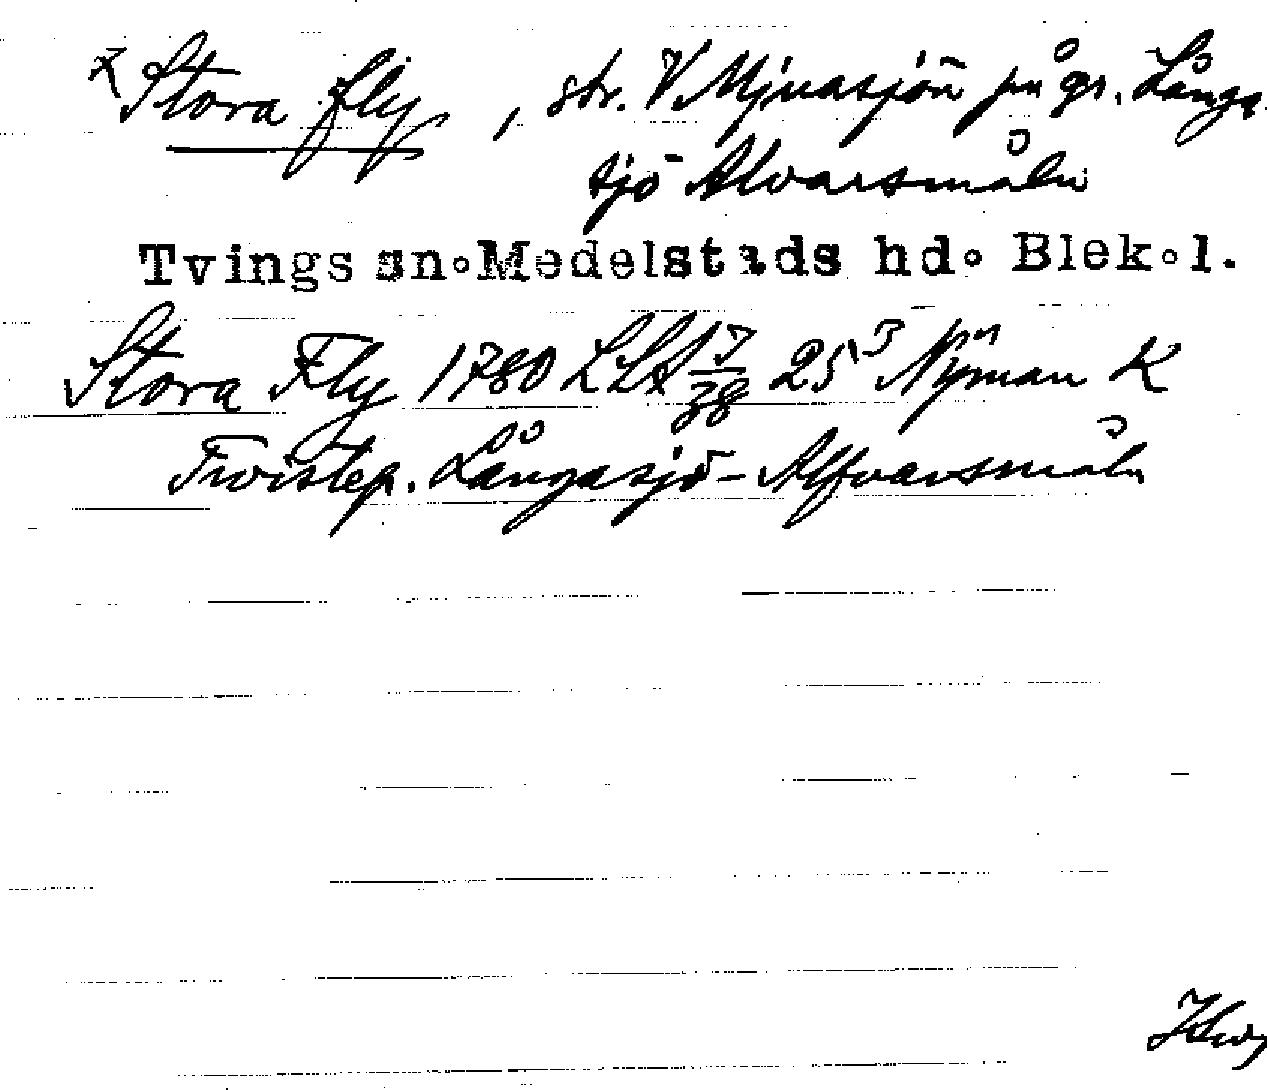 Stora fly, str. V Mjuasjön på gr. Långa
sjö Alvarsmåla
Tvings sn. Medelstads hd. Blek. l.
Stora Fly 1780 LSA 7/38 25 3 Nyman K
Twistep. Långasjö - Alfvarsmåla